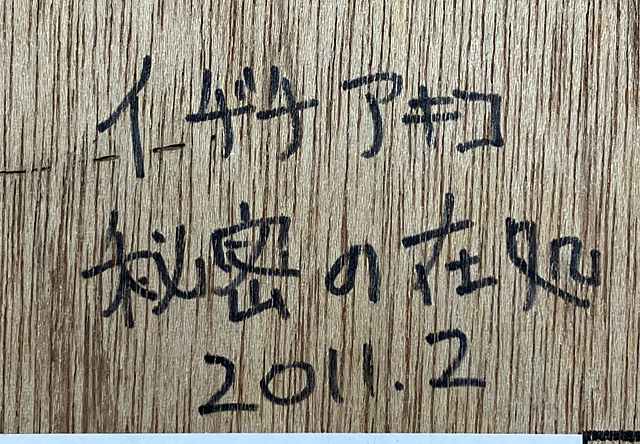 イザナ アキコ
秘密の在処
2011.2